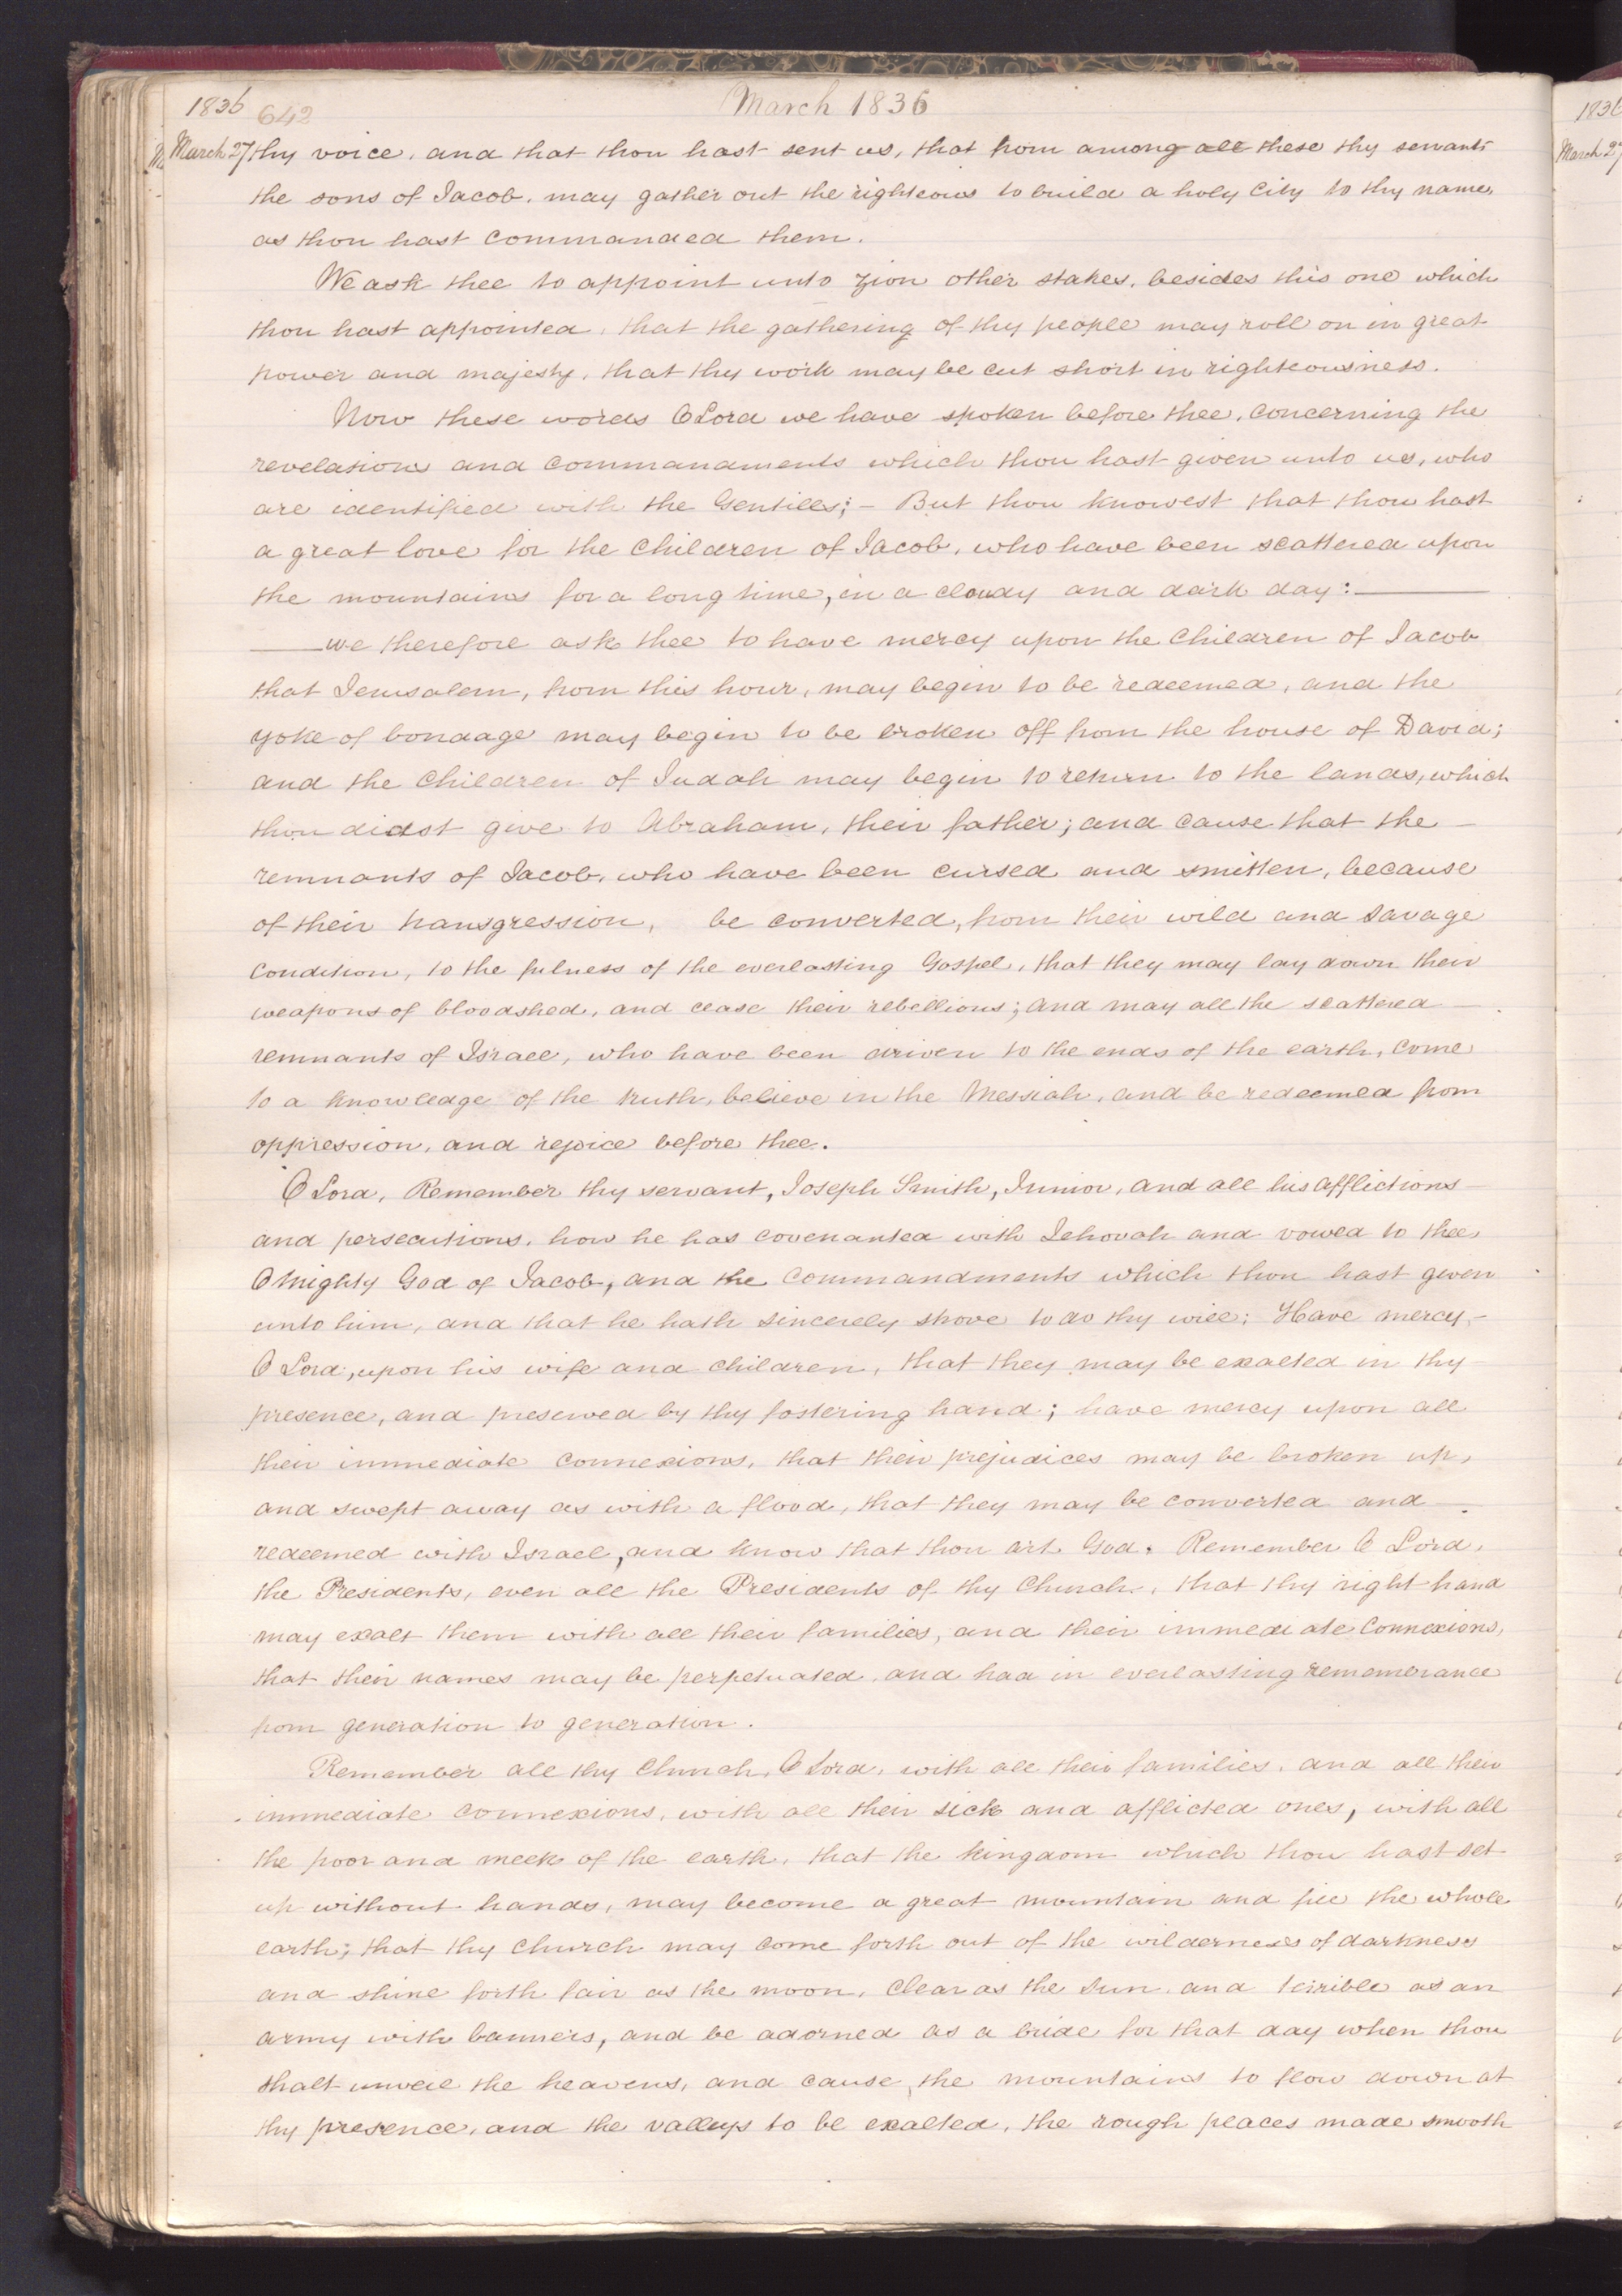 1836 642 March 1836
March 27 thy voice, and that thou hast sent us, that from among all these thy servants
the sons of Jacob, may gather out the righteous to build a holy City to thy name,
as thou hast commanded them.
We ask thee to appoint unto Zion other stakes, besides this one which
thou hast appointed, that the gathering of thy people may roll on in great
power and majesty, that thy work may be cut short in righteousness.
Now these words O Lord we have spoken before thee, concerning the
revelations and commandments which thou hast given unto us, who
are identified with the Gentiles; – But thou knowest that thou hast
a great love for the children of Jacob, who have been scattered upon
the mountains for a long time, in a cloudy and dark day: ——
—— we therefore ask thee to have mercy upon the children of Jacob
that Jerusalem, from this hour, may begin to be redeemed, and the
yoke of bondage may begin to be broken off from the house of David;
and the children of Judah may begin to return to the lands, which
thou didst give to Abraham, their father; and cause that the –
remnants of Jacob, who have been cursed and smitten, because
of their transgression, be converted, from their wild and savage
condition, to the fulness of the everlasting Gospel, that they may lay down their
weapons of bloodshed, and cease their rebellions; and may all the scattered –
remnants of Israel, who have been driven to the ends of the earth, come
to a knowledge of the truth, believe in the Messiah, and be redeemed from
oppression, and rejoice before thee.
O Lord, Remember thy servant, Joseph Smith, Junior, and all his afflictions –
and persecutions, how he has covenanted with Jehovah and vowed to thee
O Mighty God of Jacob, and the commandments which thou hast given
unto him, and that he hath sincerely strove to do thy will; Have mercy, –
O Lord, upon his wife and children, that they may be exalted in thy –
presence, and preserved by thy fostering hand; have mercy upon all
their immediate connexions, that their prejudices may be broken up,
and swept away as with a flood, that they may be converted and –
redeemed with Israel, and know that thou art God. Remember O Lord,
the Presidents, even all the Presidents of thy Church, that thy right hand
may exalt them with all their families, and their immediate connexions,
that their names may be perpetuated, and had in everlasting rememerance
from generation to generation.
Remember all thy Church, O Lord, with all their families, and all their
immediate connexions, with all their sick and afflicted ones, with all
the poor and meek of the earth, that the kingdom which thou hast set
up without hands, may become a great mountain and fill the whole
earth; that thy church may come forth out of the wilderness of darkness
and shine forth fair as the moon, clear as the Sun, and terrible as an
army with banners, and be adorned as a bride for that day when thou
shalt unveil the heavens, and cause the mountains to flow down at
thy presence, and the valleys to be exalted, the rough places made smooth
1836
March 27